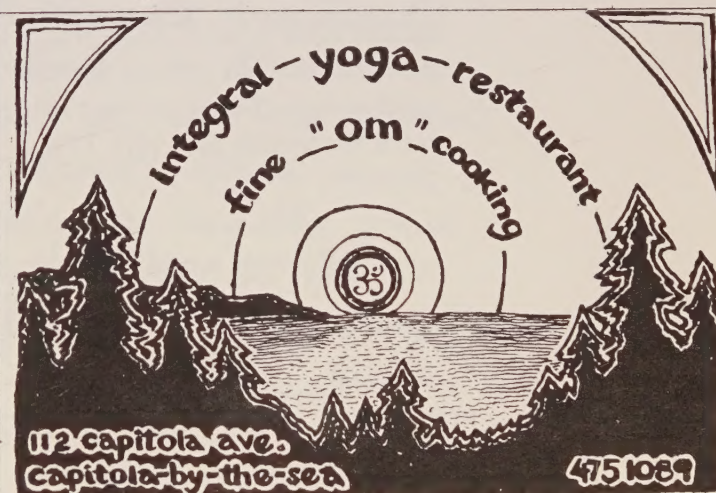 integral - yoga - restaurant
fine "om" cooking
ॐ
112 capitola ave.
capitola-by-the-sea
4751089